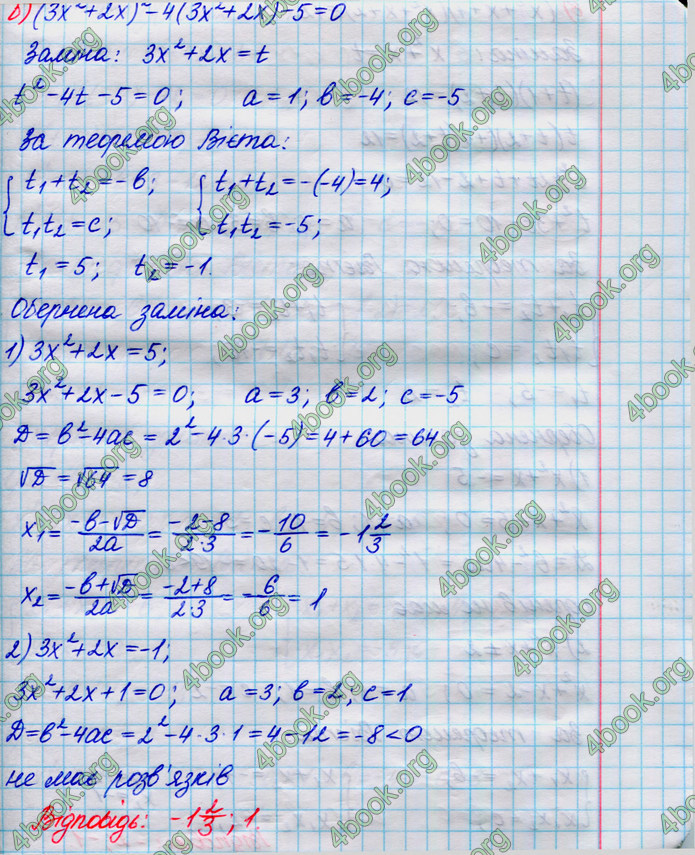 б) (3x²+2x)²-4(3x²+2x)-5=0
Заміна: 3x²+2x=t
t²-4t-5=0; a=1; b=-4; c=-5
За теоремою Вієта:
{t₁+t₂=-b; {t₁+t₂=-(-4)=4;
t₁t₂=c; t₁t₂=-5;
t₁=5; t₂=-1.
Обернена заміна:
1) 3x²+2x=5;
3x²+2x-5=0; a=3; b=2; c=-5
D=b²-4ac=2²-4·3·(-5)=4+60=64
√D=√64=8
x₁=(-b-√D)/2a=(-2-8)/(2·3)=-10/6=-1 2/3
x₂=(-b+√D)/2a=(-2+8)/(2·3)=6/6=1
2) 3x²+2x=-1;
3x²+2x+1=0; a=3; b=2; c=1
D=b²-4ac=2²-4·3·1=4-12=-8<0
не має розв'язків
Відповідь: -1 2/3; 1.
4book.org